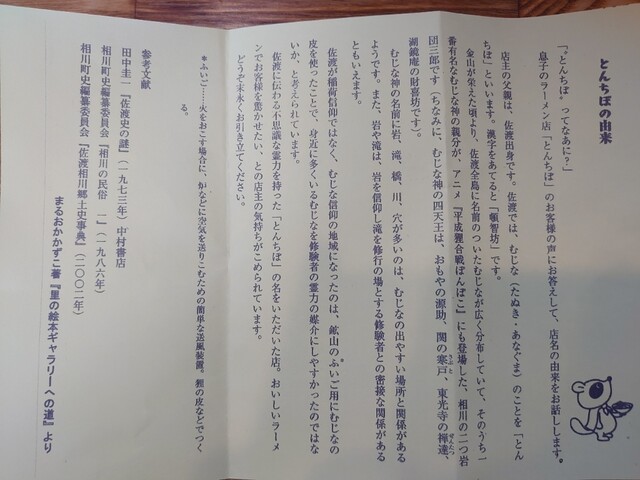 とんちぼの由来
「"とんちぼ〟ってなあに？」
息子のラーメン店「とんちぼ」のお客様の声にお答えして、店名の由来をお話しします。
店主の父親は、佐渡出身です。佐渡では、むじな（たぬき・あなぐま）のことを「とん
ちぼ」といいます。漢字をあてると「頓智坊」です。
金山が栄えた頃より、佐渡全島に名前のついたむじなが広く分布していて、そのうち一
番有名なむじな神の親分が、アニメ『平成狸合戦ぽんぽこ』にも登場した、相川の二つ岩
団三郎です（ちなみに、むじな神の四天王は、おもやの源助、関の寒戸、東光寺の禅達、
湖鏡庵の財喜坊です）。
むじな神の名前に岩、滝、橋、川、穴が多いのは、むじなの出やすい場所と関係がある
ようです。また、岩や滝は、岩を信仰し滝を修行の場とする修験者との密接な関係がある
ともいえます。
佐渡が稲荷信仰ではなく、むじな信仰の地域になったのは、鉱山のふいご用にむじなの
皮を使ったことで、身近に多くいるむじなを修験者の霊力の媒介にしやすかったのではな
いか、と考えられています。
佐渡に伝わる不思議な霊力を持った「とんちぼ」の名をいただいた店。おいしいラーメ
ンでお客様を驚かせたい、との店主の気持ちがこめられています。
どうぞ末永くお引き立てください。
＊ふいご――火をおこす場合に、炉などに空気を送りこむための簡単な送風装置。狸の皮などでつく
る。
参考文献
田中圭一『佐渡史の謎』（一九七三年）中村書店
相川町史編纂委員会『相川の民俗 一』（一九八六年）
相川町史編纂委員会『佐渡相川郷土史事典』（二〇〇二年）
まるおかかずこ著『里の絵本ギャラリーへの道』より